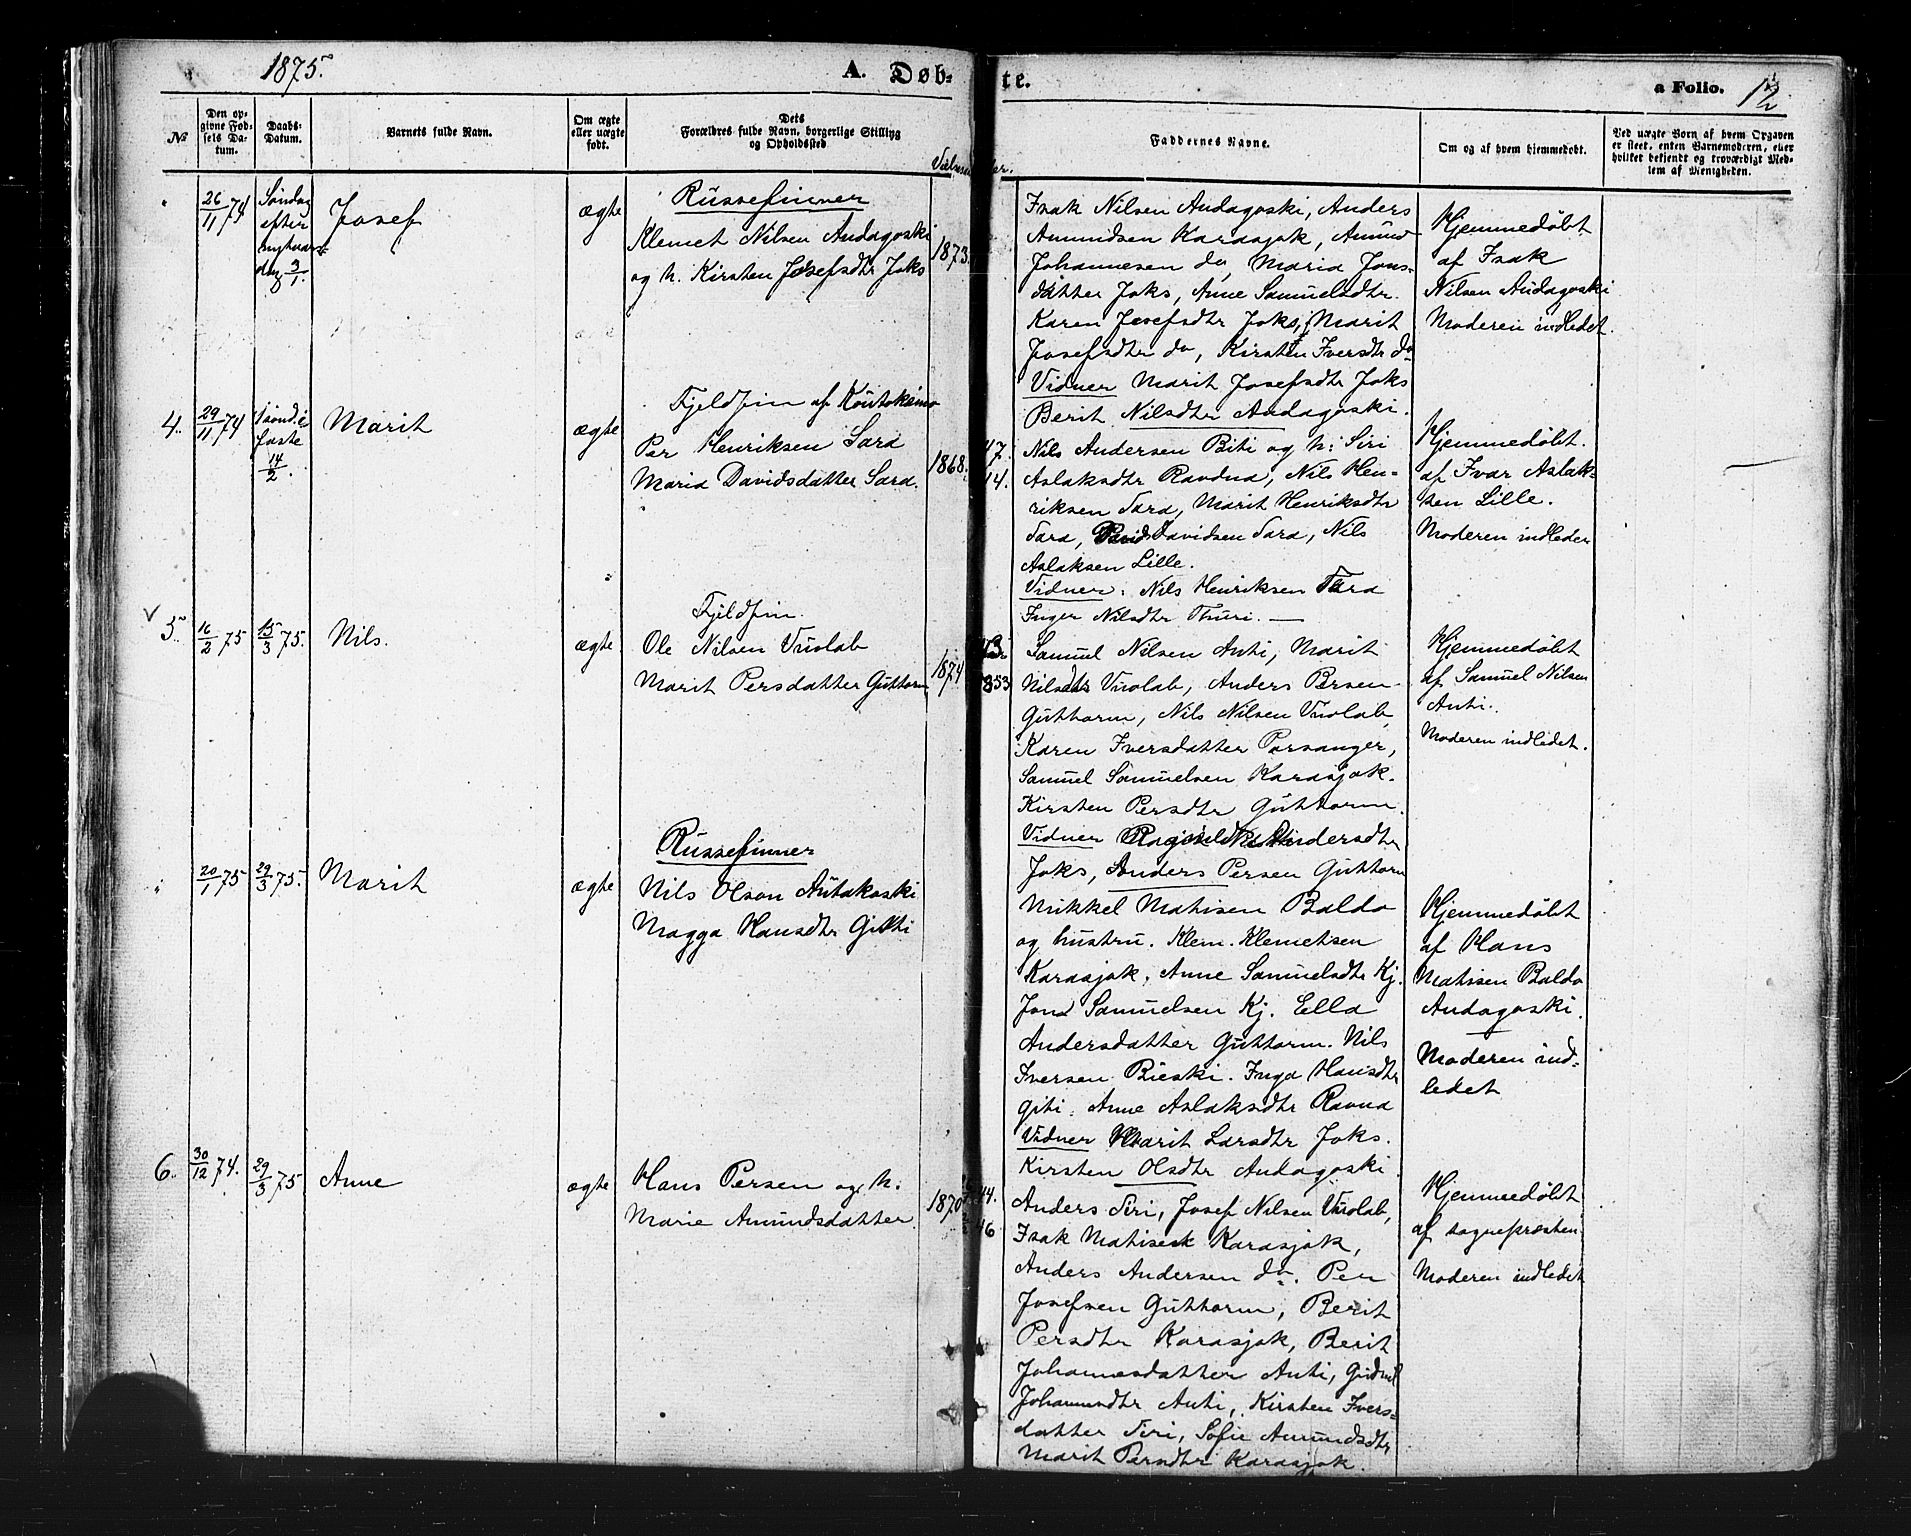 1875.
A. Døb-
te.
a Folio. 12
№
Den op-
givne Fød-
sels Da-
tum.
Daabs-
Datum.
Barnets fulde Navn.
Om ægte
eller uægte
født.
Dets
Forældres fulde Navn, borgerlige Stilling
og Opholdssted
Faddernes Navne.
Om og af hvem hjemmedøbt.
Ved uægte Børn af hvem Opgaven
er skeet, enten Barnemoderen, eller
hvilket bekjendt og troværdigt Med-
lem af Menigheden.
26/11 74
Søndag
efter
nytaars-
dag 3/1.
Josef
ægte
Russefinner
Klemet Nilsen Andagoski
og h. Kirsten Josefsdtr Joks
1873.
Isak Nilsen Andagoski, Anders
Amundsen Karasjok, Amund
Johannesen do, Maria Jons-
datter Joks, Anne Samuelsdtr.
Karen Josefsdtr Joks, Marit
Josefsdtr do, Kirsten Iversdtr do
Vidner Marit Josefsdtr Joks
Berit Nilsdtr Andagoski.
Hjemmedøbt
af Isak
Nilsen Andagoski
Moderen indledet.
4.
29/11 74
1 sønd. i
faste
14/2.
Marit
ægte
Fjeldfin af Koutokeino
Per Henriksen Sara
Maria Davidsdatter Sara.
1868.
47.
44.
Nils Andersen Biti og h: Siri
Aslaksdtr Ravdna, Nils Hen-
riksen Sara, Marit Henriksdtr
Sara, Davidsen Sara, Nils
Aslaksen Lille.
Vidner: Nils Henriksen Sara
Inger Nilsdtr Thuri. —
Hjemmedøbt.
af Ivar Aslak-
sen Lille.
Moderen indledet
5.
16/2 75
15/3 75.
Nils.
ægte
Fjeldfin.
Ole Nilsen Vuolab
Marit Persdatter Guttorm
1874
1853
Samuel Nilsen Anti, Marit
Nilsdtr Vuolab, Anders Persen
Guttorm, Nils Nilsen Vuolab,
Karen Iversdatter Porsanger,
Samuel Samuelsen Karasjok.
Kirsten Persdtr Guttorm.
Vidner Andersdtr
Joks, Anders Persen Guttorm
Hjemmedøbt
af Samuel Nilsen
Anti.
Moderen indledet.
20/1 75
29/3 75.
Marit
ægte
Russefinner
Nils Olson Autakoski
Magga Hansdtr Gitti
Mikkel Mathisen Baldo
og hustru. Klem. Klemetsen
Karasjok, Anne Samuelsdtr Kj.
Jon Samuelsen Kj. Ella
Andersdatter Guttorm. Nils
Iversen Bieski. Inga Hansdtr
Giti. Anne Aslaksdtr Ravna
Vidner Marit Larsdtr Joks.
Kirsten Olsdtr Andagoski.
Hjemmedøbt
af Hans
Mathisen Baldo
Andagoski.
Moderen ind-
ledet
6.
30/12 74.
29/3 75
Anne
ægte
Hans Persen og h.
Marie Amundsdatter.
1870
44.
46
Anders Siri, Josef Nilsen Vuolab,
Isak Mathisen Karasjok,
Anders Andersen do. Per
Josefsen Guttorm, Berit
Persdtr Karasjok, Berit
Johannesdatter Anti, Gudnil
Johannesdtr Anti, Kirsten Ivers-
datter Siri, Sofie Amundsdtr
Marit Persdtr Karasjok.
Hjemmedøbt
af sognepræsten
Moderen indledet